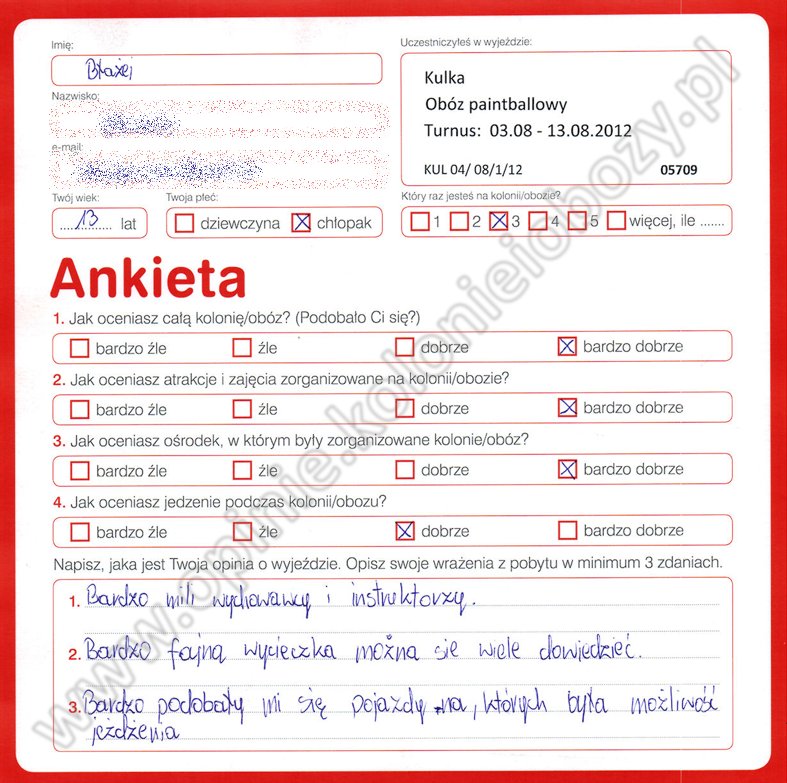 Imię:
Błażej
Nazwisko:
e-mail:
Twój wiek:
13 lat
Twoja płeć:
dziewczyna chłopak
Uczestniczyłeś w wyjeździe:
Kulka
Obóz paintballowy
Turnus: 03.08 - 13.08.2012
KUL 04/ 08/1/12 05709
Który raz jesteś na kolonii/obozie?
1 2 3 4 5 więcej, ile .......
Ankieta
1. Jak oceniasz całą kolonię/obóz? (Podobało Ci się?)
bardzo źle źle dobrze bardzo dobrze
2. Jak oceniasz atrakcje i zajęcia zorganizowane na kolonii/obozie?
bardzo źle źle dobrze bardzo dobrze
3. Jak oceniasz ośrodek, w którym były zorganizowane kolonie/obóz?
bardzo źle źle dobrze bardzo dobrze
4. Jak oceniasz jedzenie podczas kolonii/obozu?
bardzo źle źle dobrze bardzo dobrze
Napisz, jaka jest Twoja opinia o wyjeździe. Opisz swoje wrażenia z pobytu w minimum 3 zdaniach.
1. Bardzo mili wychowawcy i instruktorzy.
2. Bardzo fajna wycieczka można sie wiele dowiedzieć.
3. Bardzo podobały mi się pojazdy na, których była możliwość
jeżdżenia
www.opinie.kolonieiobozy.pl